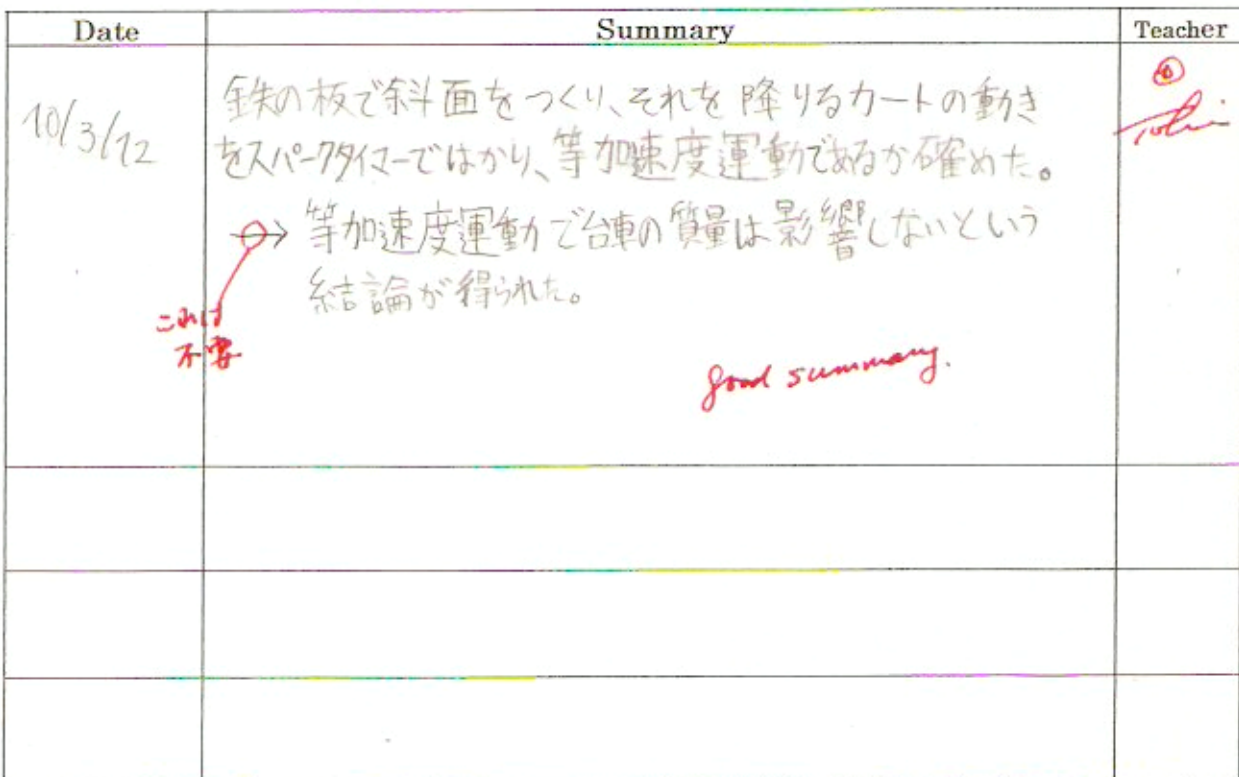 Date Summary Teacher
10/3/12
鉄の板で斜面をつくり、それを降りるカートの動き
をスパークタイマーではかり、等加速度運動であるか確めた。
→ 等加速度運動で台車の質量は影響しないという
結論が得られた。
これは
不要
good summary.